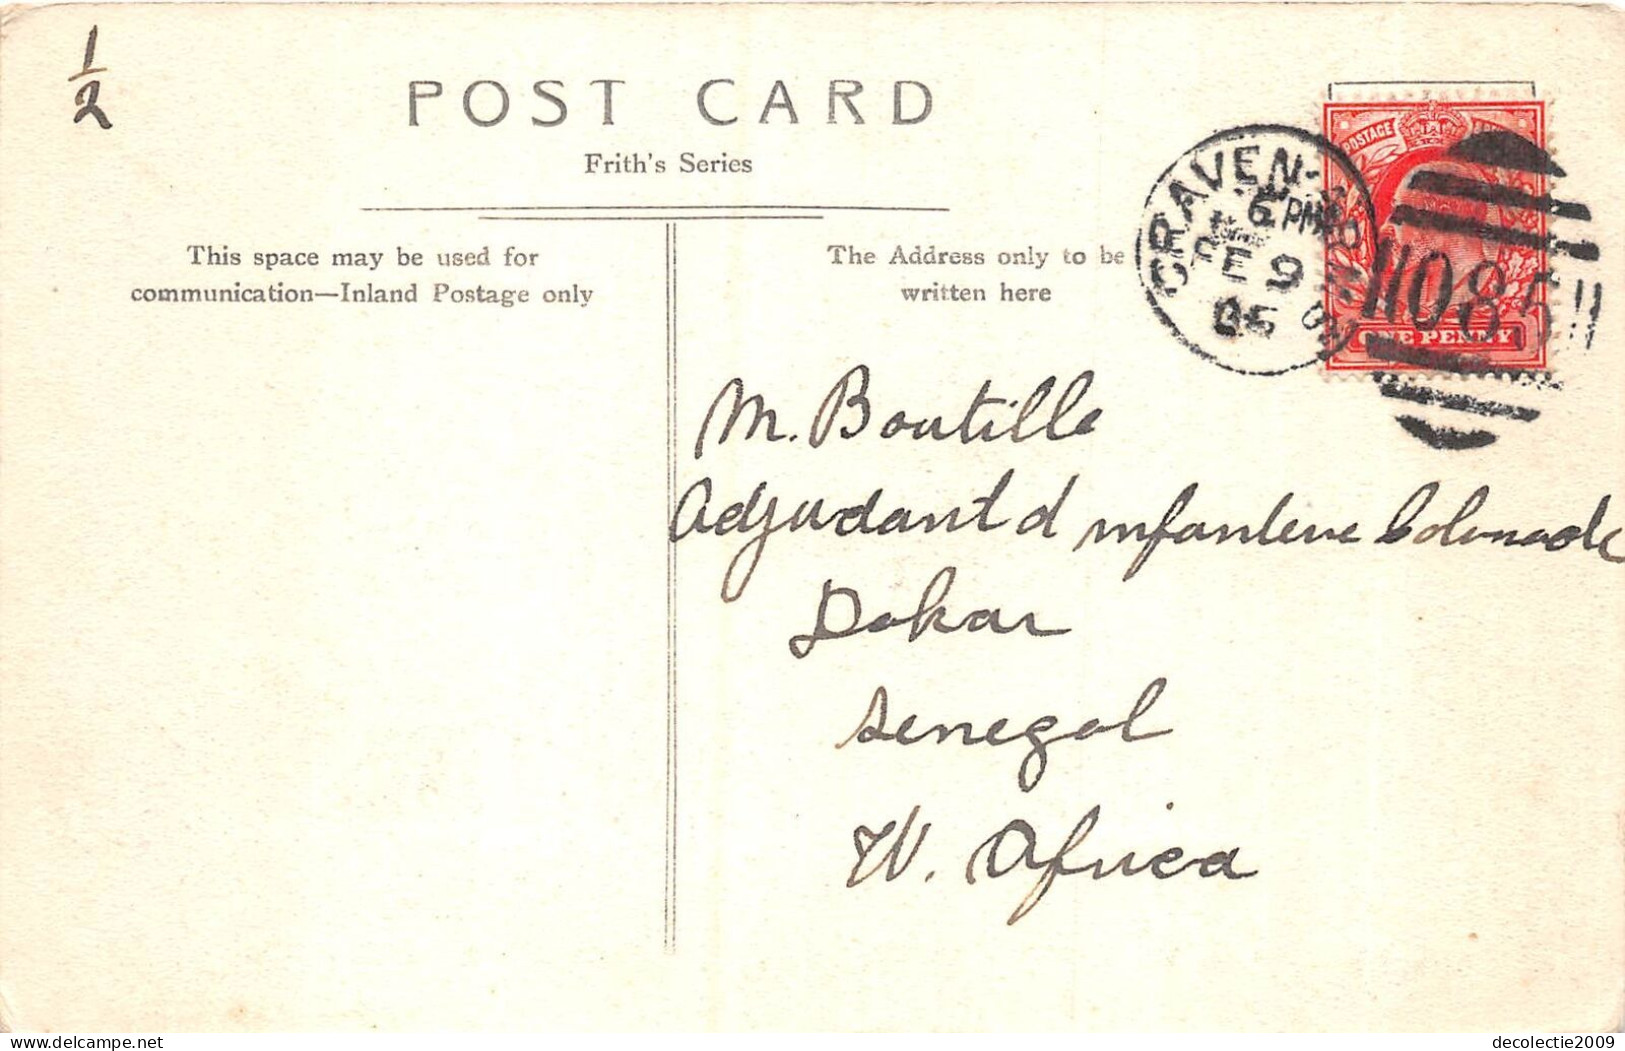 1/2
POST CARD
Frith's Series
This space may be used for
communication—Inland Postage only
The Address only to be
written here
POSTAGE
ONE PENNY
CRAVEN
6 PM
FE 9
05
085
M. Boutille
Adjudant d infanterie Coloniale
Dakar
Senegal
W. Africa
delcampe.net
decolectie2009